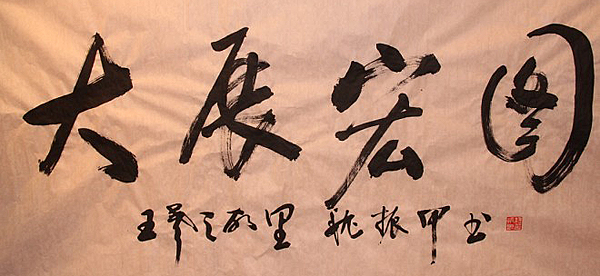 大展宏图
王羲之故里 振甲书